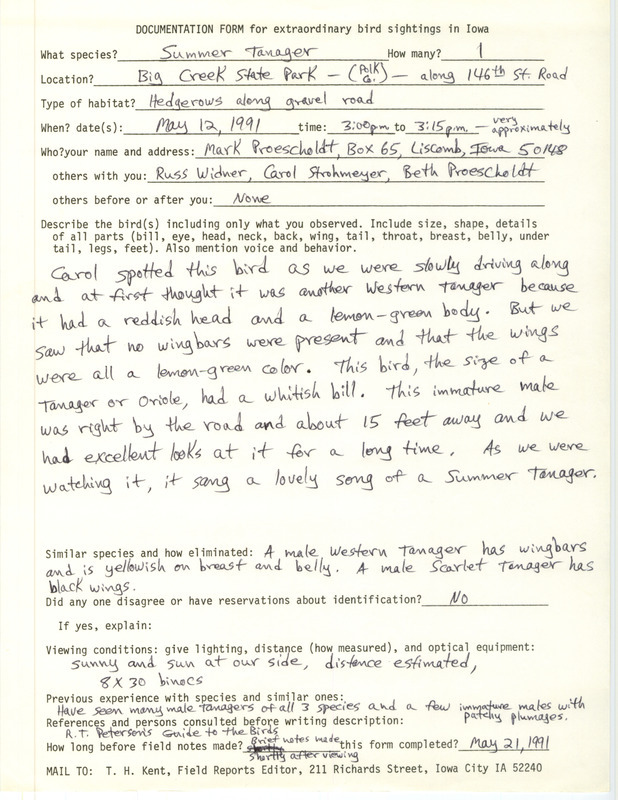 DOCUMENTATION FORM for extraordinary bird sightings in Iowa
What species? Summer Tanager How many? 1
Location? Big Creek State Park - (Polk Co.) - along 146th St. Road
Type of habitat? Hedgerows along gravel road
When? date(s): May 12, 1991 time: 3:00pm. to 3:15p.m. - very approximately
Who? your name and address: Mark Proescholdt, Box 65, Liscomb, Iowa 50148
others with you: Russ Widner, Carol Strohmeyer, Beth Proescholdt
others before or after you: None
Describe the bird(s) including only what you observed. Include size, shape, details
of all parts (bill, eye, head, neck, back, wing, tail, throat, breast, belly, under
tail, legs, feet). Also mention voice and behavior.
Carol spotted this bird as we were slowly driving along
and at first thought it was another Western Tanager because
it had a reddish head and a lemon-green body. But we
saw that no wingbars were present and that the wings
were all a lemon-green color. This bird, the size of a
Tanager or Oriole, had a whitish bill. This immature male
was right by the road and about 15 feet away and we
had excellent looks at it for a long time. As we were
watching it, it sang a lovely song of a Summer Tanager.
Similar species and how eliminated: A male Western Tanager has wingbars
and is yellowish on breast and belly. A male Scarlet Tanager has
black wings.
Did any one disagree or have reservations about identification? No
If yes, explain:
Viewing conditions: give lighting, distance (how measured), and optical equipment:
sunny and sun at our side, distence estimated,
8 X 30 binocs
Previous experience with species and similar ones:
Have seen many male tanagers of all 3 species and a few immature males with
patchy plumages.
References and persons consulted before writing description:
R.T. Peterson's Guide to the Birds
How long before field notes made? Brief notes made shortly after viewing this form completed? May 21, 1991
MAIL TO: T. H. Kent, Field Reports Editor, 211 Richards Street, Iowa City IA 52240